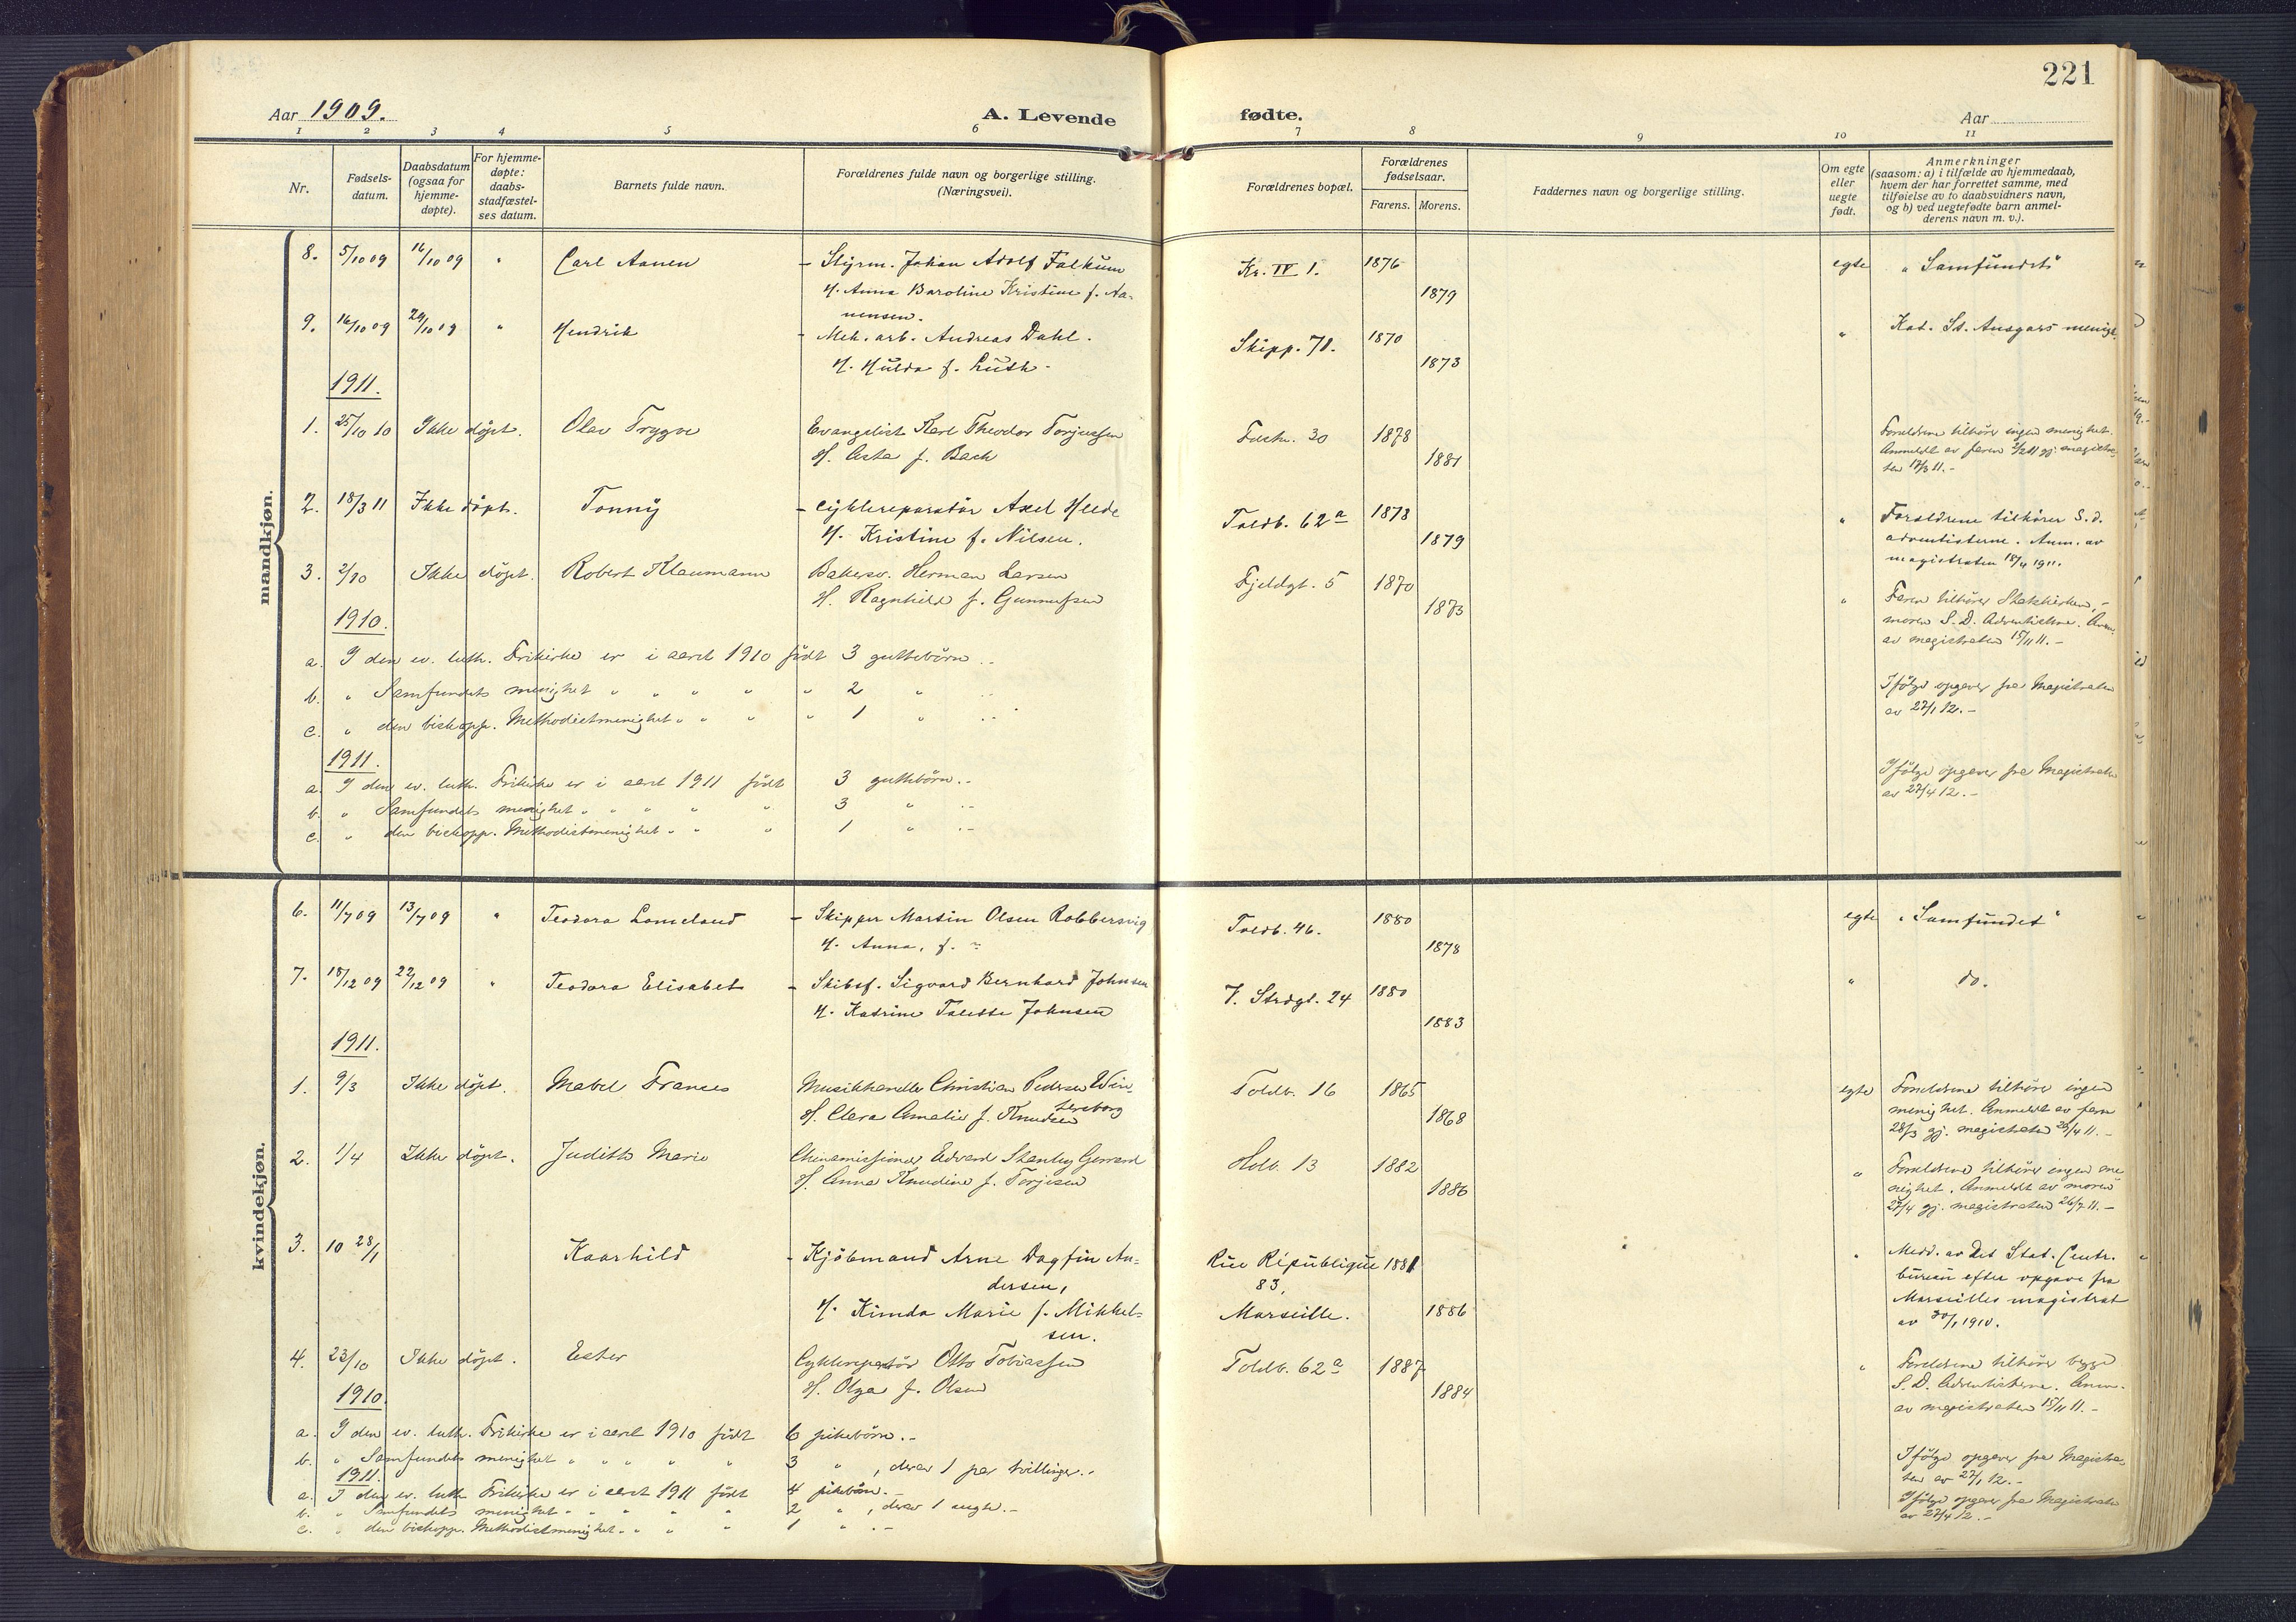 221
Aar 1909.
A. Levende fødte.
Aar
1 2 3 4 5 6 7 8 9 10 11
Nr.
Fødsels-
datum.
Daabsdatum
(ogsaa for
hjemme-
døpte).
For hjemme-
døpte:
daabs-
stadfæstel-
ses datum.
Barnets fulde navn.
Forældrenes fulde navn og borgerlige stilling.
(Næringsvei).
Forældrenes bopæl.
Forældrenes
fødselsaar.
Farens. Morens.
Faddernes navn og borgerlige stilling.
Om egte
eller
uegte
født.
Anmerkninger
(saasom: a) i tilfælde av hjemmedaab,
hvem der har forrettet samme, med
tilføielse av to daabsvidners navn,
og b) ved uegtefødte barn anmel-
derens navn m. v.).
mandkjøn.
8. 5/10 09 16/10 09 " Carl Aanen - Styrm. Johan Adolf Falkum Kr. IV 1. 1876 egte "Samfundet"
H. Anna Baroline Kristine f. Aa- 1879
nensen.
9. 16/10 09 24/10 09 " Hendrik - Mek. arb. Andreas Dahl. Skipp. 71. 1870 " Kat. St. Ansgars menigh.
H. Hulda f. Lüth. 1873
1911.
1. 25/10 10 Ikke døpt. Olav Trygve Evangelist Karl Theodor Torjussen Festn. 30 1878 Forældrene tilhører ingen menighet.
H. Asta f. Bach 1881 Anmeldt av faren 2/2 11 gj. magistra-
ten 17/3 11.-
2. 18/3 11 Ikke døpt. Tonny - Cyklereparatør Axel Heede Toldb. 62a 1878 " Forældrene tilhører S. d.
H. Kristine f. Nilsen. 1879 adventisterne. Anm. av
magistraten 18/4 1911.
3. 2/10 Ikke døpt. Robert Klaumann Bakersv. Herman Larsen Fjeldgt. 5 1870 " Faren tilhører Statskirken,-
H. Ragnhild f. Gunnufsen 1873 moren S. D. Adventisterne. Anm.
av magistraten 15/11 11.-
1910.
a. I den ev. luth. Frikirke er i aaret 1910 født 3 guttebørn..
b. " Samfundets menighet " " " " " 2 " Ifølge opgaver fra Magistraten
c. " den biskopp. Methodistmenighet " " " " 1 " av 27/1 12.-
1911.
a. I den ev. luth. Frikirke er i aaret 1911 født 3 guttebørn.- Ifølge opgaver fra Magistraten
b. " Samfundets menighet " " " " " 3 " .- av 27/4 12.-
c. " den biskopp. Methodistmenighet " " " 1 " .-
kvindekjøn.
6. 11/7 09 13/7 09 " Teodora Lomeland - Skipper Martin Olsen Robbersvig Toldb. 46. 1880 egte "Samfundet"
H. Anna, f. ~ 1878
7. 18/12 09 22/12 09 " Teodora Elisabet - Skibsf. Sigvard Bernhard Johnsen V. Strdgt. 24 1880 " do.
H. Katrine Talette Johnsen 1883
1911.
1. 9/3 Ikke døpt. Mabel Frances Musikhandler Christian Pedersen Win- Toldb. 16 1865 egte Forældrene tilhører ingen
H. Clara Amalie f. Knudsen 1868 menighet. Anmeldt av faren
28/3 gj. magistraten 29/4 11.-
2. 1/4 Ikke døpt. Judith Marie Chinamissionær Edvard Stanley Gerrard Holb. 13 1882 " Forældrene tilhører ingen me-
H. Anna Knudine f. Torjesen 1886 nighet. Anmeldt av moren
27/4 gj. magistraten 26/7 11.-
3. 10 28/1 Kaarhild - Kjøbmand Arne Dagfin An- Rue République 1881 " Medd. av Det Stat. Centr.
dersen, 83, bureau efter opgave fra
H. Kimda Marie f. Mikkel- Marseille. 1886 Marseilles magistrat
sen. av 30/1 1910.
4. 23/10 Ikke døpt. Ester Cyklereparatør Otto Tobiassen Toldb. 62a 1887 " Forældrene tilhører begge
H. Olga f. Olsen 1884 S. D. Adventisterne. Anm.
av magistraten 15/11 11.-
1910.
a. I den ev. luth. Frikirke er i aaret 1910 født 6 pikebørn.-
b. " Samfundets menighet " " " " " 3 " , derav 1 par tvillinger.. Ifølge opgaver fra Magistra-
ten av 27/1 12.-
1911.
a. I den ev. luth. Frikirke er i aaret 1911 født 4 pikebørn.- Ifølge opgaver fra Magistraten
b. " Samfundets menighet " " " " " 2 " , derav 1 uegte.- av 27/4 12.-
c. " den biskopp. Methodistmenighet. " " " 1 " .-